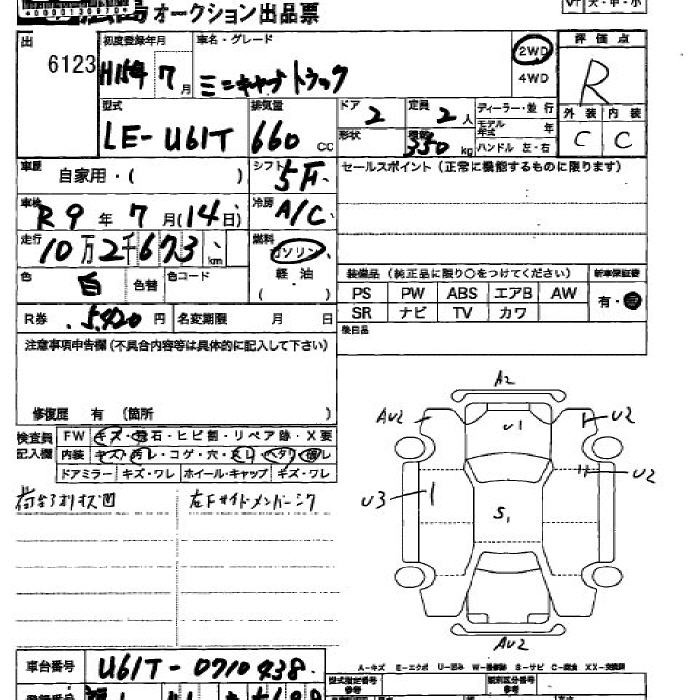 オークション出品票
出
6123
初度登録年月
H15年 7月
車名・グレード
ミニキャブ トラック
2WD
4WD
評価点
R
型式
LE-U61T
排気量
660 cc
ドア 2
形状
定員 2 人
350 kg
ディーラー・並行
モデル年式 年
ハンドル 左・右
外装 内装
C C
車歴
自家用・( )
シフト
5F
セールスポイント (正常に機能するものに限ります)
車検
R9年 7月(14日)
冷房
A/C
走行
10万2千673 km
燃料
ガソリン
軽・油
( )
色
白
色替
色コード
装備品 (純正品に限り○をつけてください)
新車保証書
PS PW ABS エアB AW
SR ナビ TV カワ
有・
R券 5,420 円
名変期限 月 日
後日品
注意事項申告欄 (不具合内容等は具体的に記入して下さい)
修復歴 有 (箇所 )
検査員記入欄
FW キズ・飛石・ヒビ割・リペア跡・X要
内装 キズ・汚レ・コゲ・穴・スレ・ヘタリ・破レ
ドアミラー キズ・ワレ ホイール・キャップ キズ・ワレ
左Fサイドメンバー
A2
AU2
U1
U2
U2
U3
S1
AU2
A-キズ E-エクボ U-凹み W-補修跡 S-サビ C-腐食 XX-交換済
車台番号
U61T-0710438
型式指定番号
参考
類別区分番号
参考